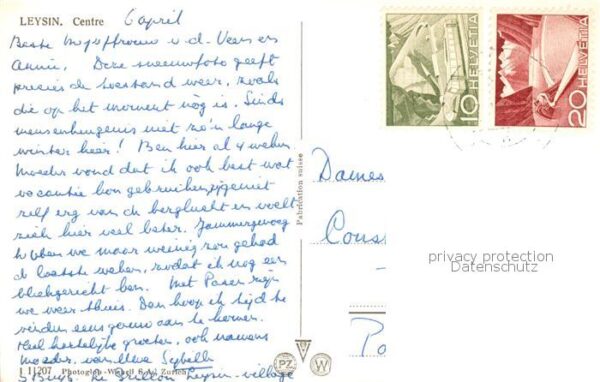 LEYSIN, Centre 6 april
Beste Mejuffrouw v.d. Veer en
Annie. Deze sneeuwfoto geeft
precies de toestand weer, zoals
die op het moment nog is. Sinds
mensenheugenis niet zo'n lange
winter hier! Ben hier al 4 weken
Moeder vond dat ik ook best wat
vacantie kon gebruiken, geniet
zelf erg van de berglucht en voelt
zich hier veel beter. Jammergenoeg
hebben we maar weinig zon gehad
de laatste weken, zodat ik nog een
bleekgezicht ben. Met Pasen zijn
we weer thuis. Dan hoop ik tijd te
vinden eens gauw aan te komen.
Veel hartelijke groeten, ook namens
Moeder, van Uwe Sybille
Le Grillon Leysin-village
I 11207 Photoglob-Wehrli S.A., Zürich
Fabrication suisse
PZ
W
10 HELVETIA
20 HELVETIA
Dames
Cons
Po
privacy protection
Datenschutz